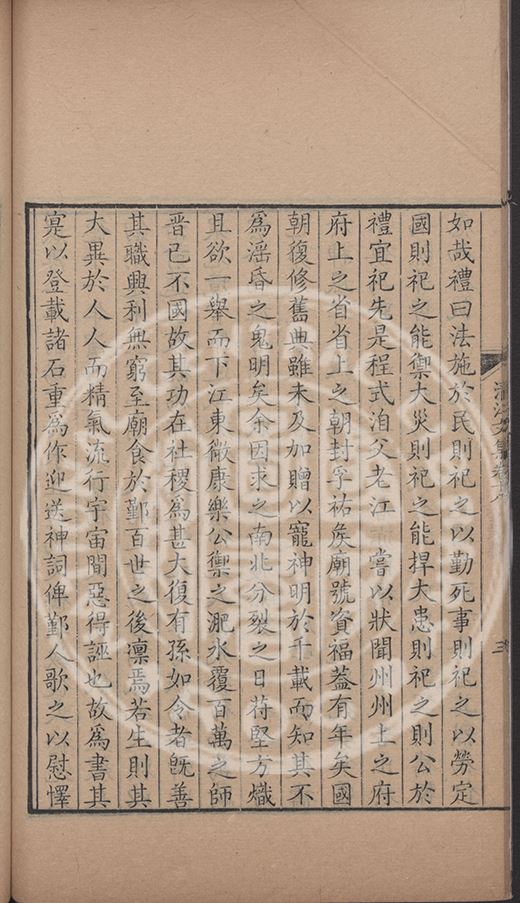 如哉禮曰法施於民則祀之以勤死事則祀之以勞定
國則祀之能禦大災則祀之能捍大患則祀之則公於
禮宜祀先是程式洎父老江 嘗以狀聞州州上之府
府上之省省上之朝封孚祐矦廟號資福葢有年矣國
朝復修舊典雖未及加贈以寵神明於千載而知其不
為滛昏之鬼明矣余因求之南北分裂之日苻堅方熾
且欲一舉而下江東微康樂公禦之淝水覆百萬之師
晉已不國故其功在社稷為甚大復有孫如令者旣善
其職興利無窮至廟食於鄞百世之後凛焉若生則其
大異於人人而精氣流行宇宙間惡得誣也故為書其
寔以登載諸石重為作迎送神詞俾鄞人歌之以慰懌
清江文集卷
三